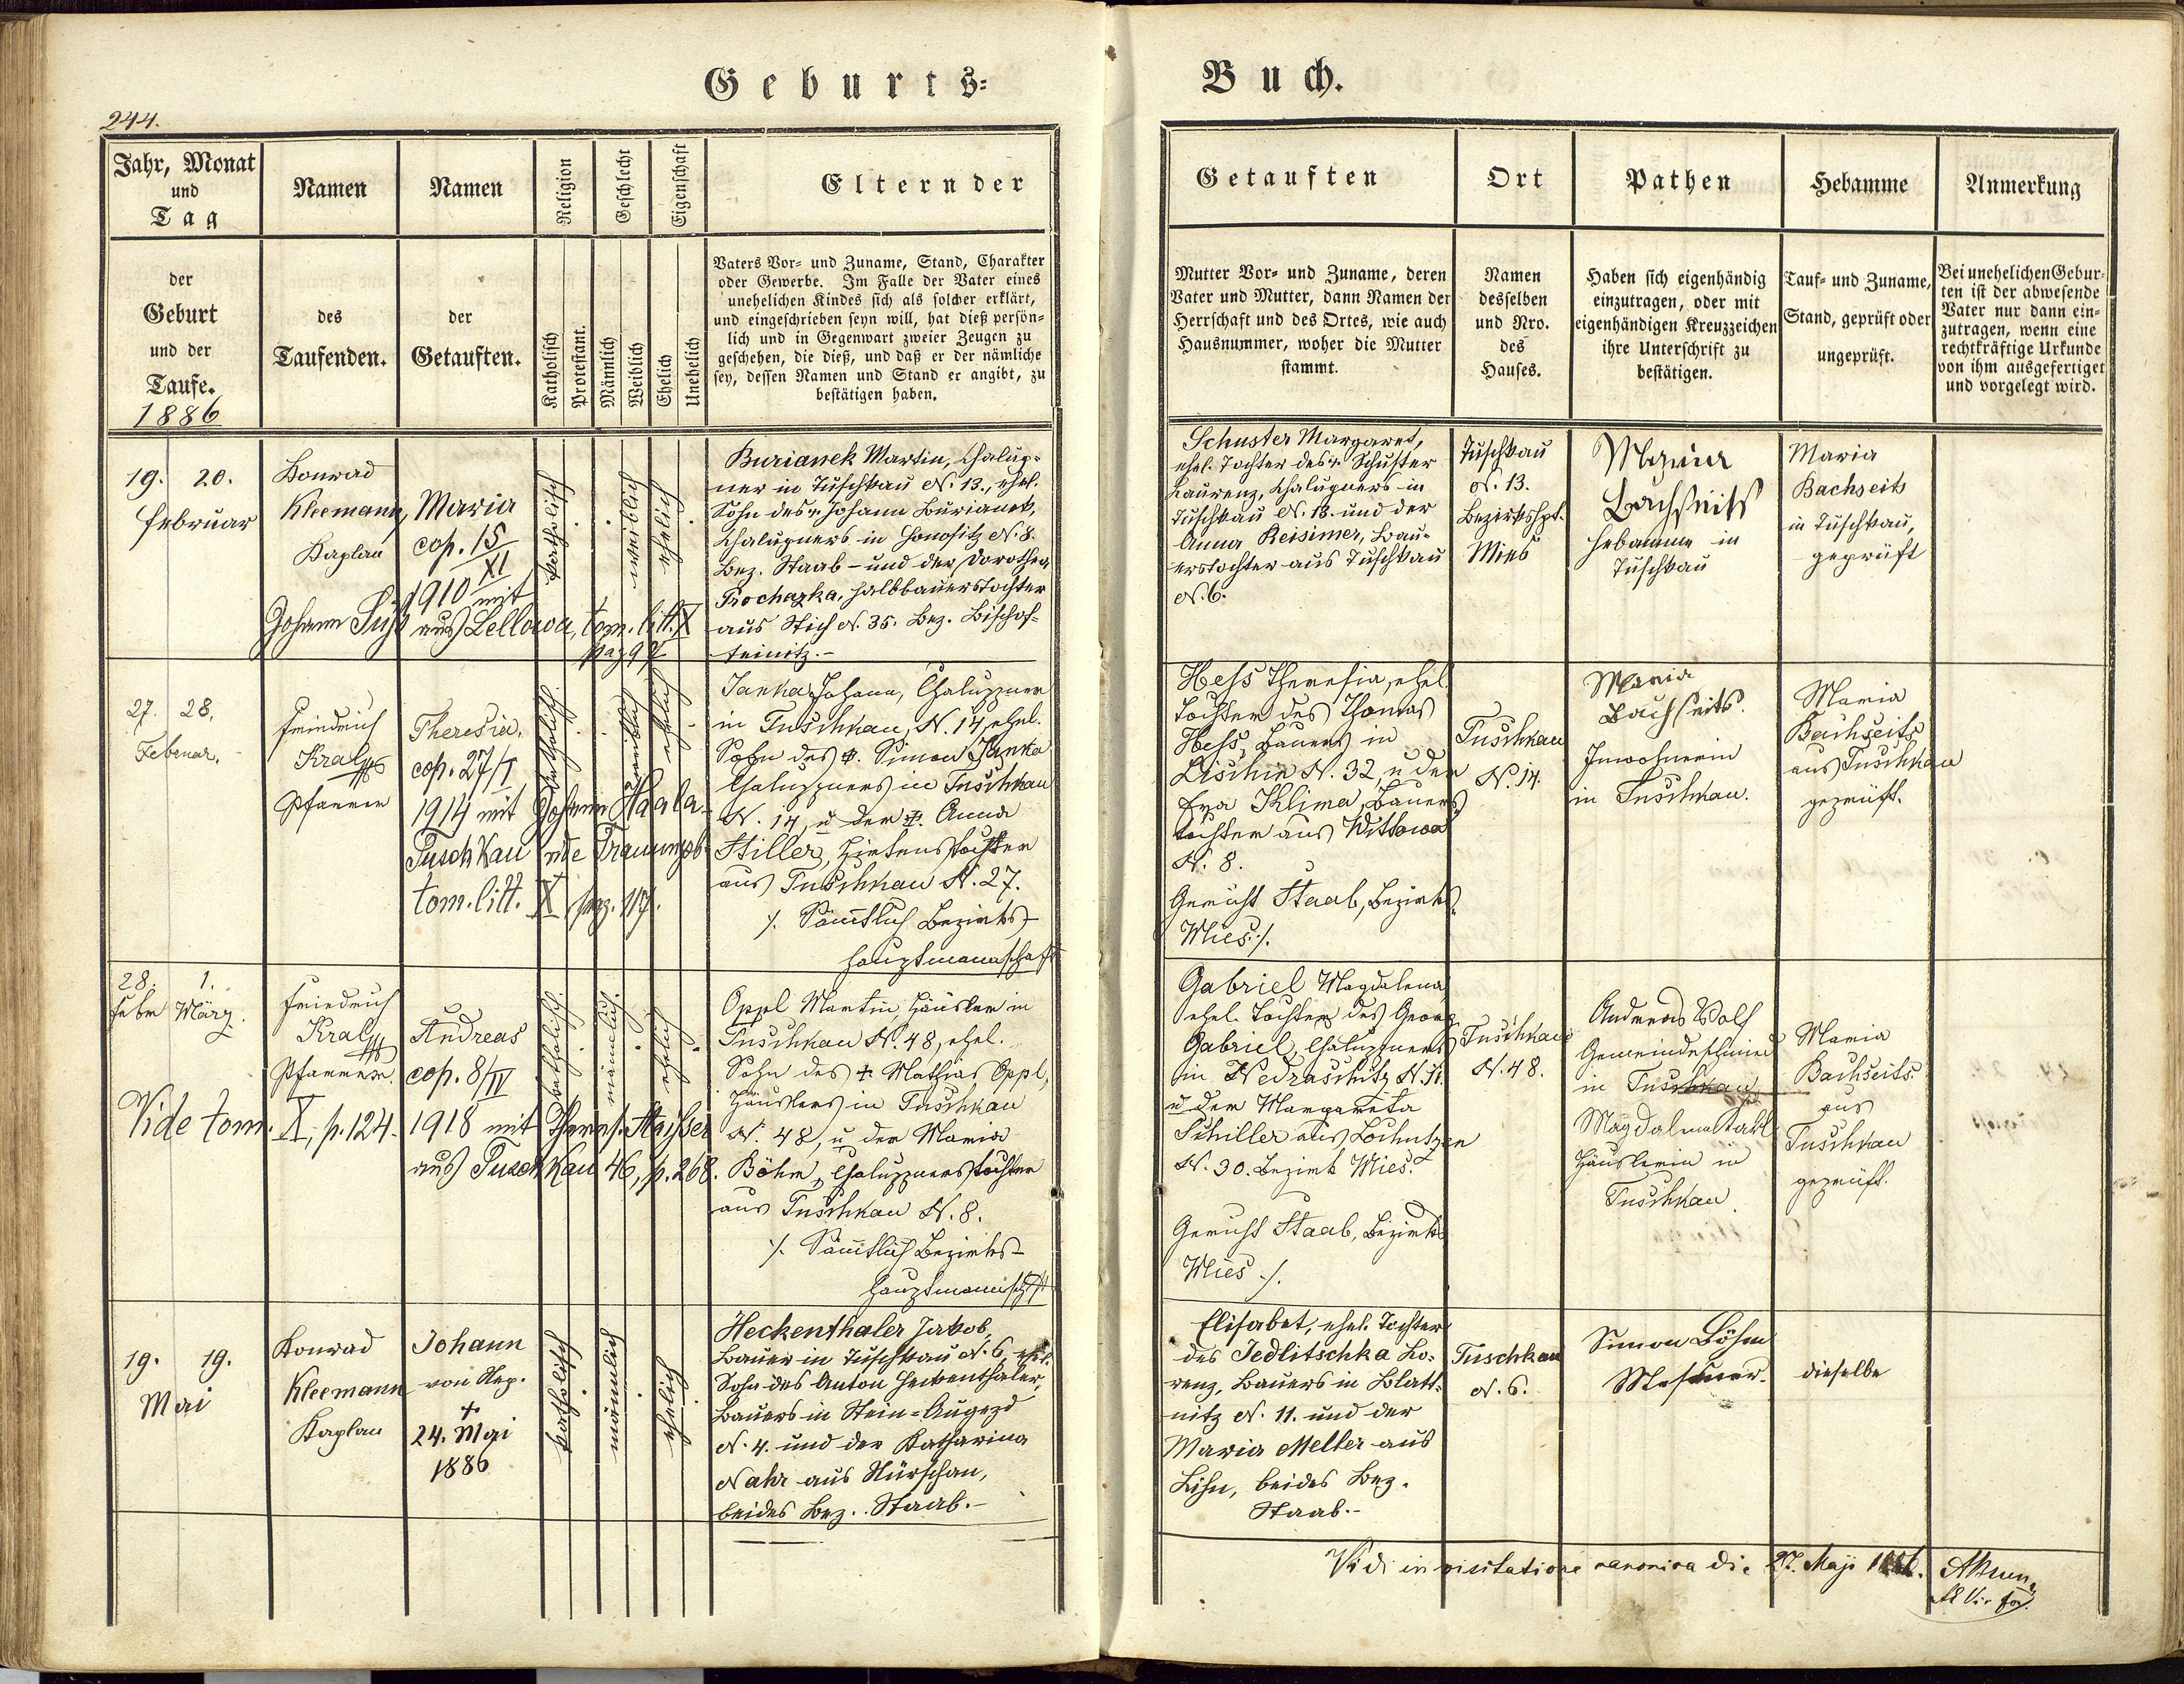 Geburts=
Buch.
244.
Jahr, Monat
und
Tag
Namen
Namen
Religion
Geschlecht
Eigenschaft
Eltern der
der
Geburt
und der
Taufe.
1886
des
Taufenden.
der
Getauften.
Katholisch
Protestant.
Männlich
Weiblich
Ehelich
Unehelich
Vaters Vor= und Zuname, Stand, Charakter
oder Gewerbe. Im Falle der Vater eines
unehelichen Kindes sich als solcher erklärt,
und eingeschrieben seyn will, hat dieß persön=
lich und in Gegenwart zweier Zeugen zu
geschehen, die dieß, und daß er der nämliche
sey, dessen Namen und Stand er angibt, zu
bestätigen haben.
Getauften
Ort
Pathen
Hebamme
Anmerkung
Mutter Vor= und Zuname, deren
Vater und Mutter, dann Namen der
Herrschaft und des Ortes, wie auch
Hausnummer, woher die Mutter
stammt.
Namen
desselben
und Nro.
des
Hauses.
Haben sich eigenhändig
einzutragen, oder mit
eigenhändigen Kreuzzeichen
ihre Unterschrift zu
bestätigen.
Tauf= und Zuname,
Stand, geprüft oder
ungeprüft.
Bei unehelichen Gebur=
ten ist der abwesende
Vater nur dann ein=
zutragen, wenn eine
rechtkräftige Urkunde
von ihm ausgefertiget
und vorgelegt wird.
19. 20.
Februar
Konrad
Kleemann,
Kaplan
Maria
cop. 15/XI
1910 mit
Johann Süß aus Lellowa, tom. litt. X
pag 97
katholisch
weiblich
ehelich
Burianek Martin, Chalup=
ner in Tuschkau N. 13., ehel.
Sohn des + Johann Burianek,
Chalupners in Honositz N. 8.
Bez. Staab – und der Dorothea
Prochazka, Halbbauerstochter
aus Stich N. 35. Bez. Bischof=
teinitz. –
Schuster Margaret,
ehel. Tochter des + Schuster
Laurenz, Chalupners in
Tuschkau N. 13. und der
Anna Reisimer, Bau=
erstochter aus Tuschkau
N. 6.
Tuschkau
N. 13.
Bezirkshpt.
Mies
Maria
Bachseits
Hebamme in
Tuschkau
Maria
Bachseits
in Tuschkau,
geprüft
27. 28.
Februar.
Friedrich
Kral
Pfarrer
Theresia.
cop. 27/I
1914 mit Johann Haala
Tuschkau vide Trauungsb.
tom. litt. X pag. 117.
katholisch.
weiblich
ehelich
Janka Johann, Chaluppner
in Tuschkau, N. 14, ehel.
Sohn des +. Simon Janka
Chaluppners in Tuschkau
N. 14, u der +. Anna
Stiller, Hirtenstochter
aus Tuschkau N. 27.
/. Sämtlich Bezirks-
hauptmannschaft
Hess Theresia, ehel.
Tochter des Thomas
Hess, Bauers in
Lischin N. 32, u der
Eva Klima, Bauers
tochter aus Wittowa
N. 8.
Gericht Staab, Bezirks
Mies ./.
Tuschkau
N. 14.
Maria
Bachseits.
Inwohnerin
in Tuschkau.
Maria
Bachseits
aus Tuschkau
geprüft.
28. 1.
Febr März.
Friedrich
Kral
Pfarrer.
Andreas
cop. 8/IV
Vide tom. X, p. 124. 1918 mit Theres. Staißer
aus Tuschkau 46, p. 268.
katholisch.
männlich.
ehelich
Oppl Martin, Häusler in
Tuschkau N. 48, ehel.
Sohn des + Mathias Oppl,
Häuslers in Tuschkau
N. 48, u der Maria
Böhm, Chaluppnerstochter
aus Tuschkau N. 8.
/. Sämtlich Bezirks-
hauptmannschft
Gabriel Magdalena,
ehel. Tochter des Georg
Gabriel, Chaluppners
in Nedraschitz
u der Margareta
Schiller aus Lochutzen
N. 30. Bezirk Mies.
Gericht Staab, Bezirks
Mies ./.
Tuschkau
N. 48.
Andreas Wolf
Gemeindeschmied
in Tuschkau
Magdalena
Häuslerin in
Tuschkau.
Maria
Bachseits.
aus
Tuschkau
geprüft.
19. 19.
Mai
Konrad
Kleemann
Kaplan
Johann
von Nep.
+
24. Mai
1886
katholisch
männlich
ehelich
Heckenthaler Jakob,
Bauer in Tuschkau N. 6, ehel.
Sohn des Anton Heckenthaler,
Bauers in Stein=Augezd
N. 4. und der Katharina
Nahr aus Nürschan,
beides Bez. Staab. –
Elisabet, ehel. Tochter
des Jedlitschka Lo=
renz, Bauers in Blatt=
nitz N. 11. und der
Maria Meller aus
Lihn, beides Bez.
Staab. –
Tuschkau
N. 6.
Simon Böhm
Messner.
dieselbe
Vidi in visitatione canonica die 27. Maji 1886.